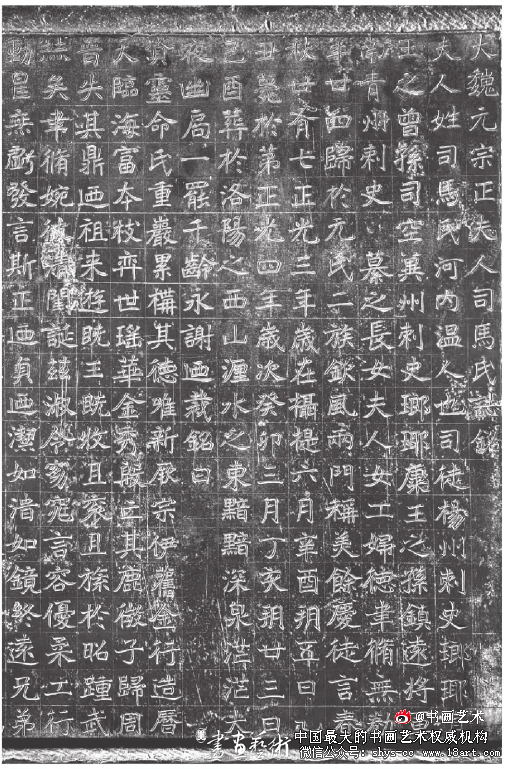 大魏元宗正夫人司馬氏誌銘
夫人姓司馬氏河内温人也司徒楊州刺史瑯琊
王之曾孫司空冀州刺史瑯琊康王之孫鎮遠將
青州刺史纂之長女夫人女工婦徳聿脩無
年廿迺歸於元氏二族欽風兩門稱美餘慶徒言春
秋廿有七正光三年歲在攝提六月辛酉朔五日
丑薨於第正光四年歲次癸卯三月丁亥朔廿三日
己酉葬於洛陽之西山瀍水之東黯黯深泉茫茫大
夜幽局一罷千齡永謝迺裁銘曰
靈命氏重巖累構其德唯新厥宗伊舊金行造曆
天臨海富本枝弈世瑤華金秀殷亡其鹿微子歸周
魯失其鼎迺祖来遊旣王旣牧且衮且旒於昭踵武
矣聿脩婉閨誕茲淑令窈窕言容優柔工行
動是無虧發言斯正迺貞迺潔如渚如鏡終遠兄弟
@书画艺术
書畫藝術
中国最大的书画艺术权威机构
微信公众号：shys-cc www.18art.com